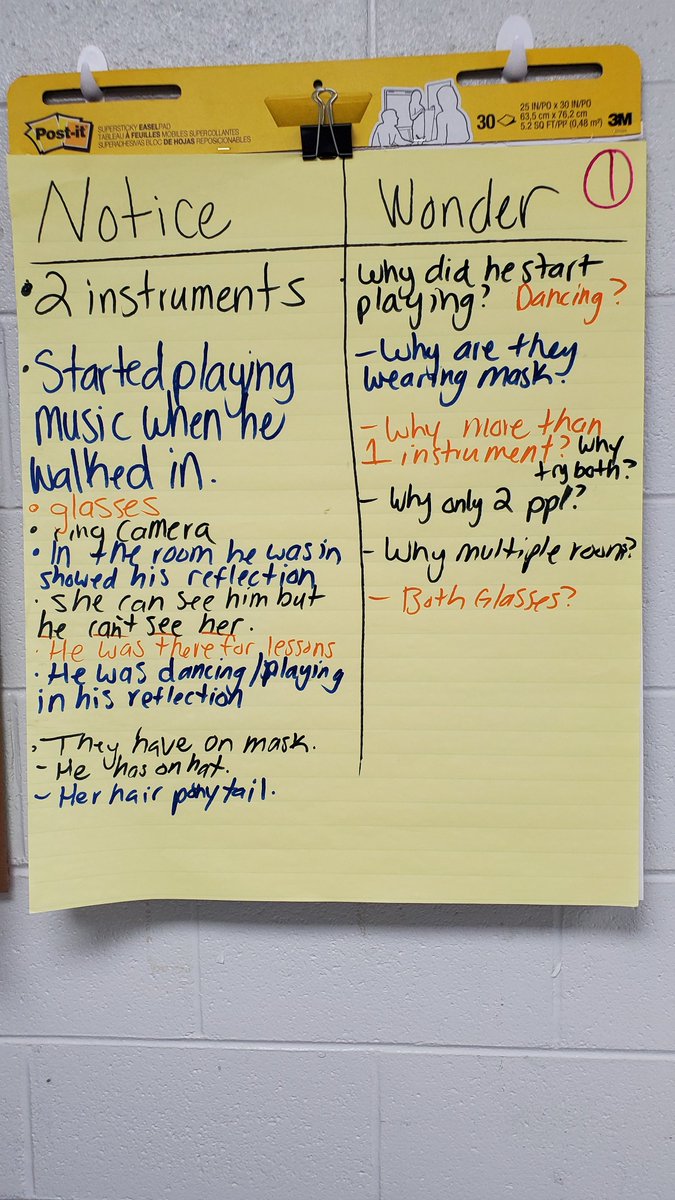 Post-it
SUPERSTICKY EASEL PAD
TABLEAU À FEUILLES MOBILES SUPERCOLLANTES
SUPERADHESIVAS BLOC DE HOJAS REPOSICIONABLES
30
25 IN/PO x 30 IN/PO
63,5 cm x 76,2 cm
5.2 SQ FT/PP (0,48 m²)
3M
Notice
• 2 instruments
• Started playing
music when he
walked in.
• glasses
• ring camera
• In the room he was in
showed his reflection
• She can see him but
he can't see her.
• He was there for lessons
• He was dancing/playing
in his reflection
• They have on mask.
- He has on hat.
- Her hair pony tail.
Wonder
1
• Why did he start
playing? Dancing?
- Why are they
wearing mask?
- Why more than
1 instrument? Why
try both?
- Why only 2 ppl?
- Why multiple rooms?
- Both Glasses?